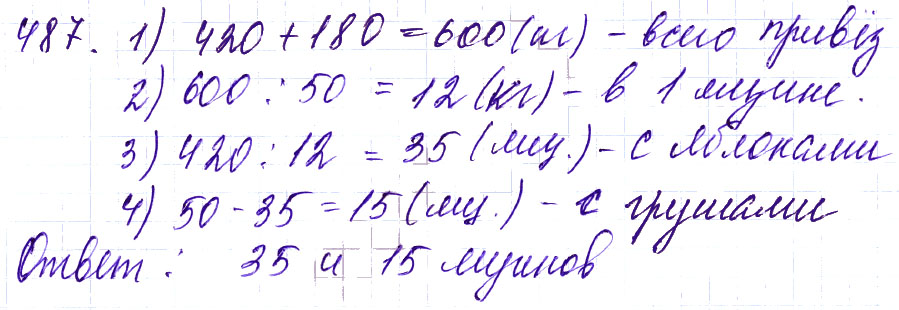 487. 1) 420 + 180 = 600 (кг) - всего привёз
2) 600 : 50 = 12 (кг) - в 1 ящике.
3) 420 : 12 = 35 (ящ.) - с яблоками
4) 50 - 35 = 15 (ящ.) - с грушами
Ответ : 35 и 15 ящиков